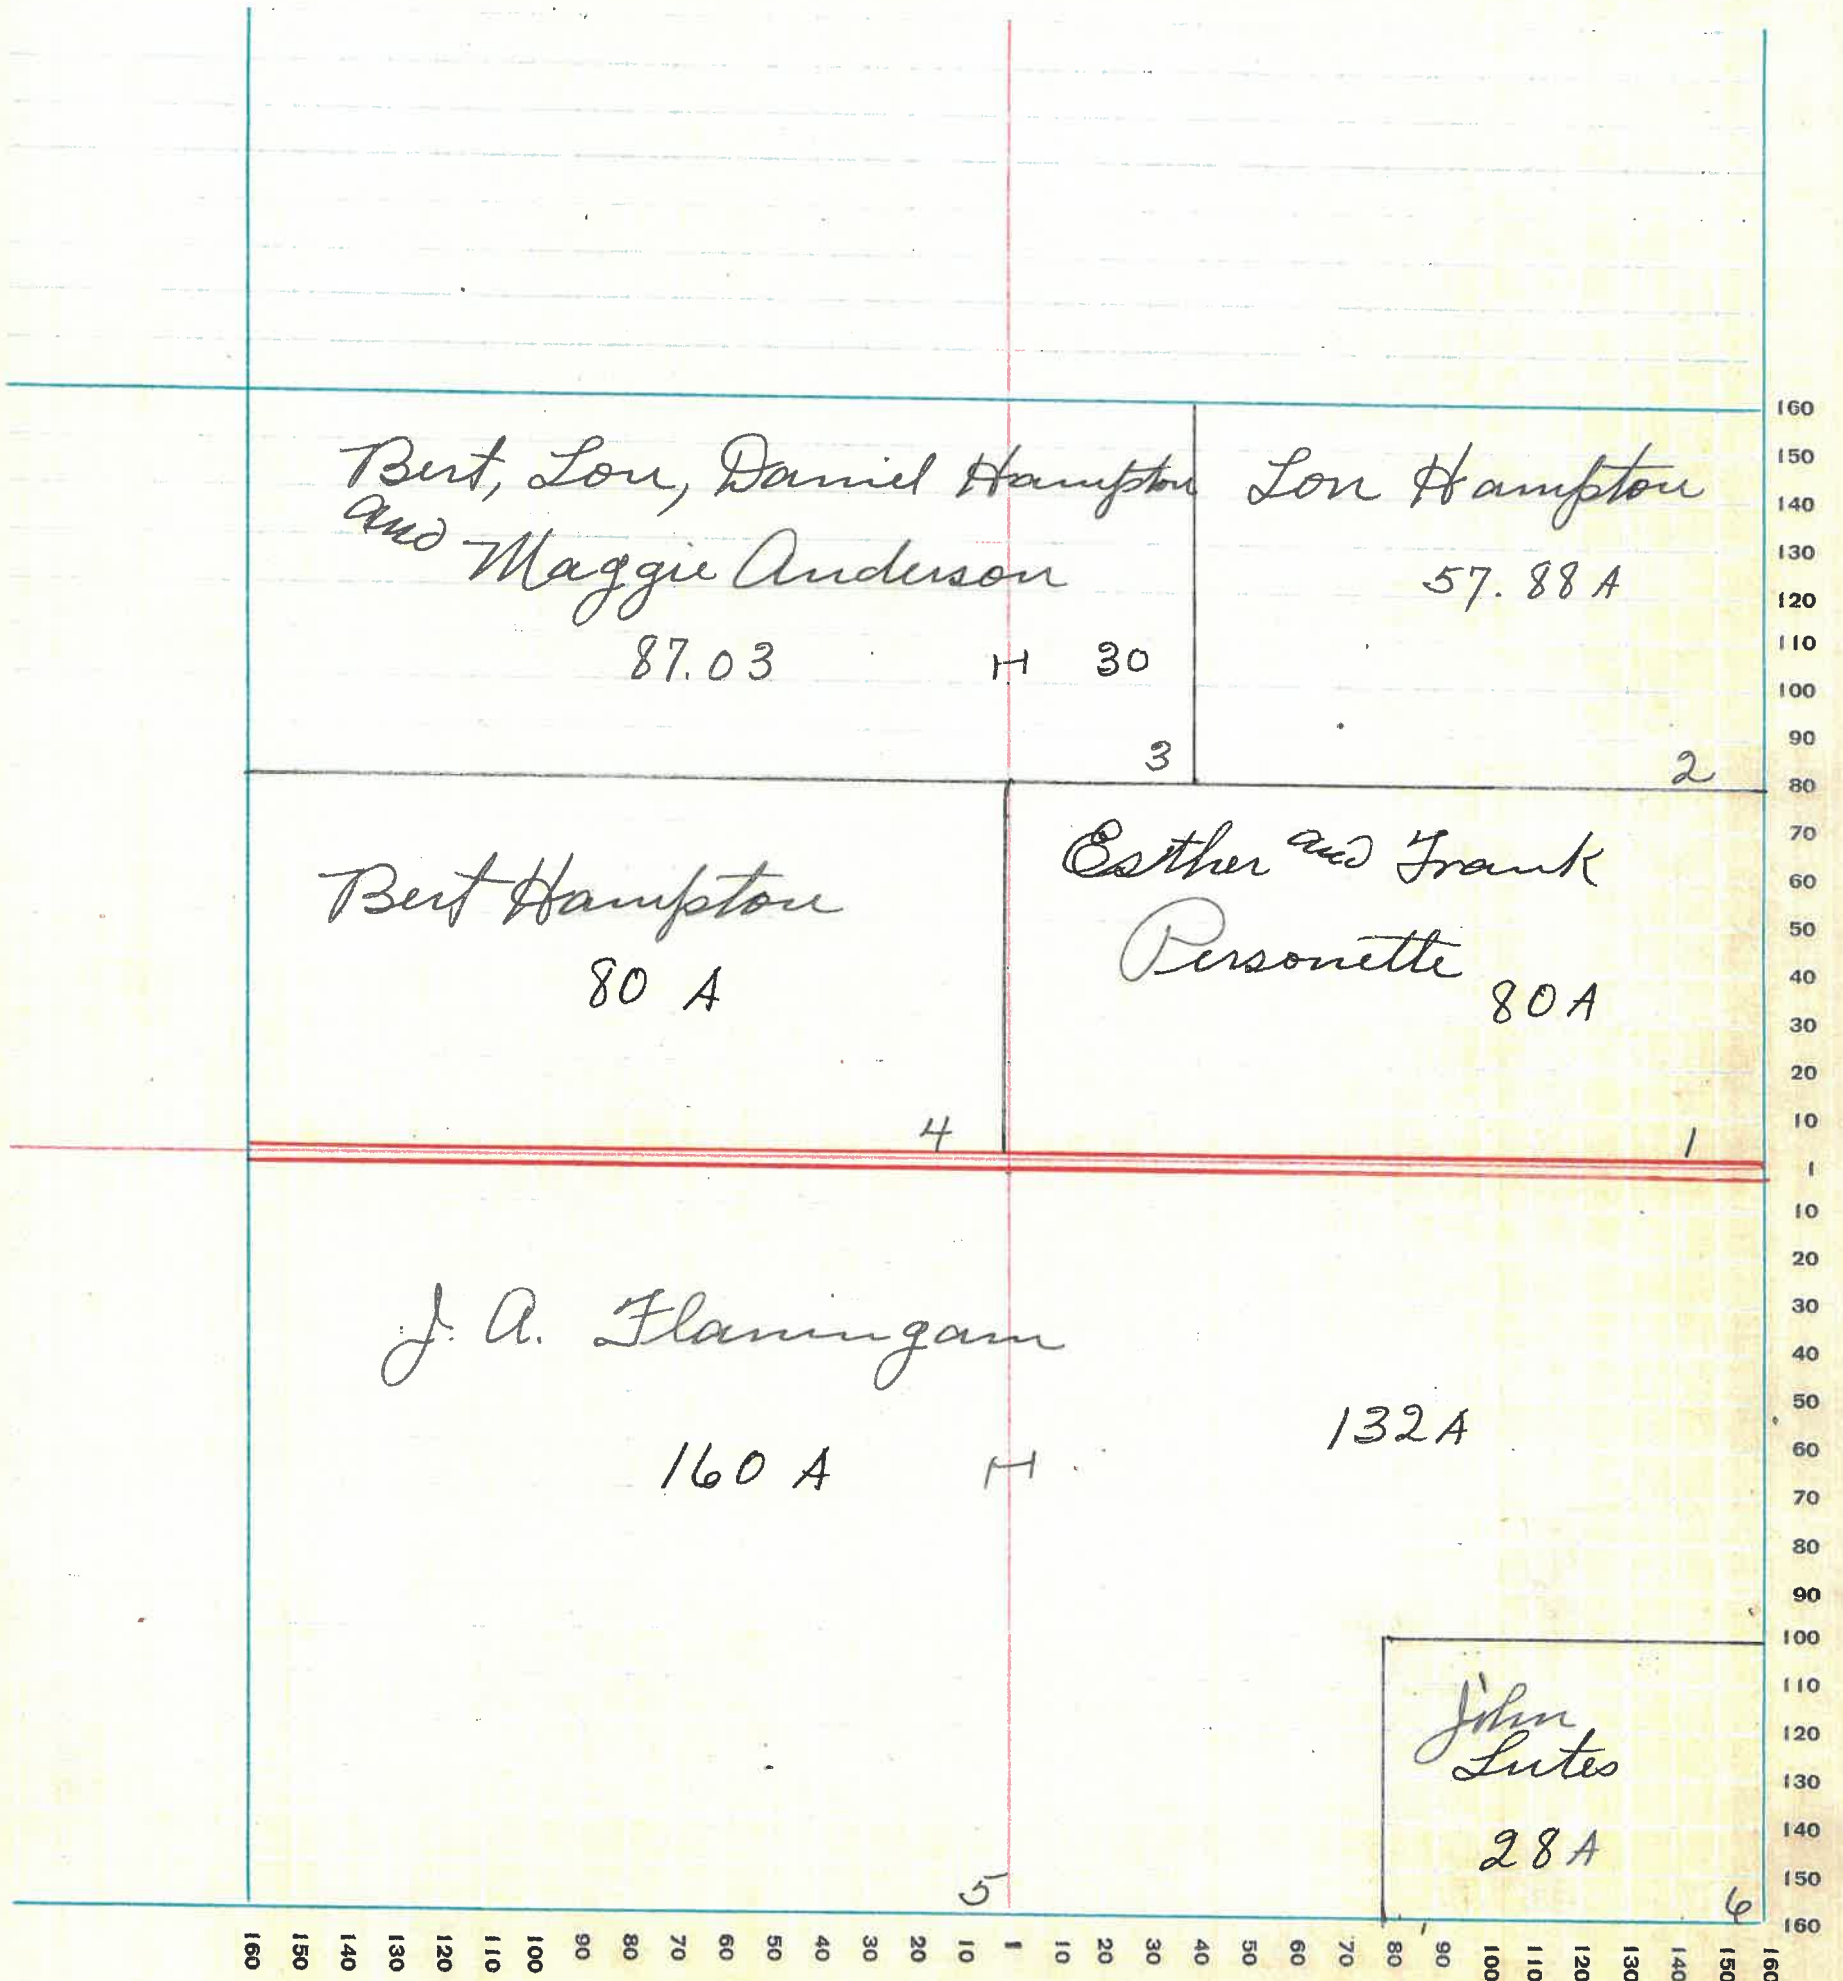 Bert, Lon, Daniel Hampton
and Maggie Anderson
87.03 H 30
3
Lon Hampton
57.88 A
2
Bert Hampton
80 A
4
Esther and Frank
Personette
80 A
1
J. A. Flaningam
160 A H 132 A
5
John
Lutes
28 A
6
160
150
140
130
120
110
100
90
80
70
60
50
40
30
20
10
1
10
20
30
40
50
60
70
80
90
100
110
120
130
140
150
160
160 150 140 130 120 110 100 90 80 70 60 50 40 30 20 10 1 10 20 30 40 50 60 70 80 90 100 110 120 130 140 150 160